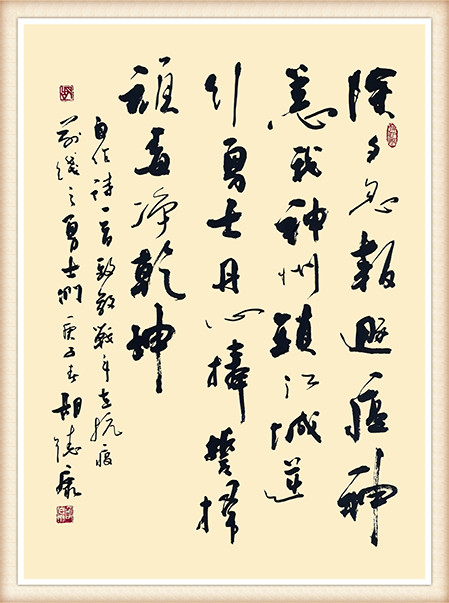 除夕急報避瘟神
惹我神州鎖江城逆
行勇士丹心捧誓掃
毒淨乾坤
自作詩一首致敬戰斗在抗疫
前綫之勇士們庚子春胡德康